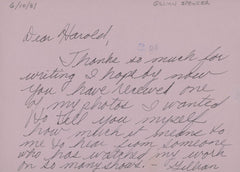 6/10/81
GILLIAN SPENCER
Dear Harold,
Thanks so much for
writing I hope by now
you have received one
of my photos I wanted
to tell you myself
how much it means to
me to hear from someone
who has watched my work
on so many shows - Gillian